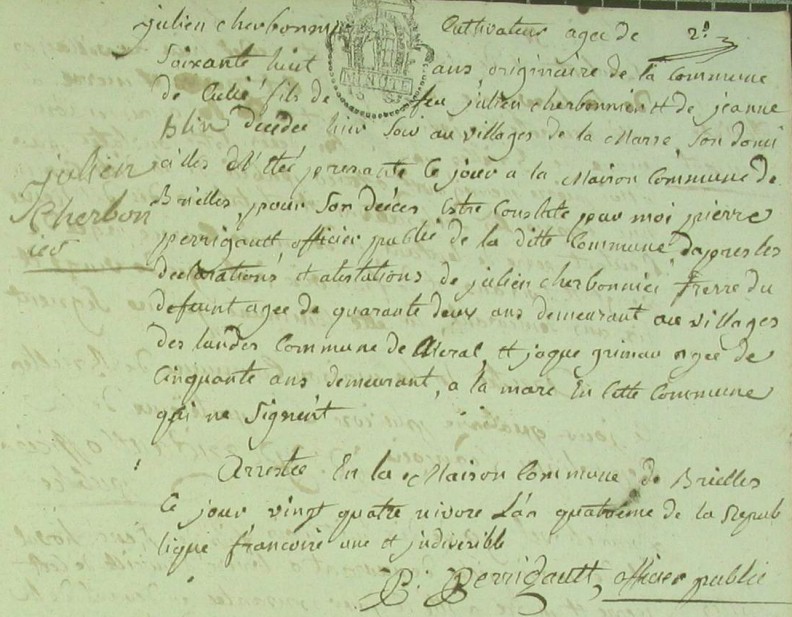 julien cherbonnier Cultivateur agee de 2d
Soixante huit ans originaire de la Commune
de Cuilé fils de feu julien cherbonnier et de jeanne
blin décédée hier Soir au villages de la Marre, Son domi
cilles presante Ce jour a la Maison Commune de
Brielles, pour Son deces Estre Constate par moi pierre
perrigault officier public de la ditte Commune dapres les
declarations et atestations de julien cherbonnier frerre du
defunt agee de quarante deux ans demeurant au villages
des landes Commune de Meral, et jaque grimau agee de
Cinquante ans demeurant, a la mare En Cette Commune
qui ne Signent
julien
Cherbon
ier
Arrestee En la Maison Commune de Brielles
Ce jour vingt quatre nivose L'an quatrieme de la Repub
lique francoise une et indivisible
P. Perrigault, officier public